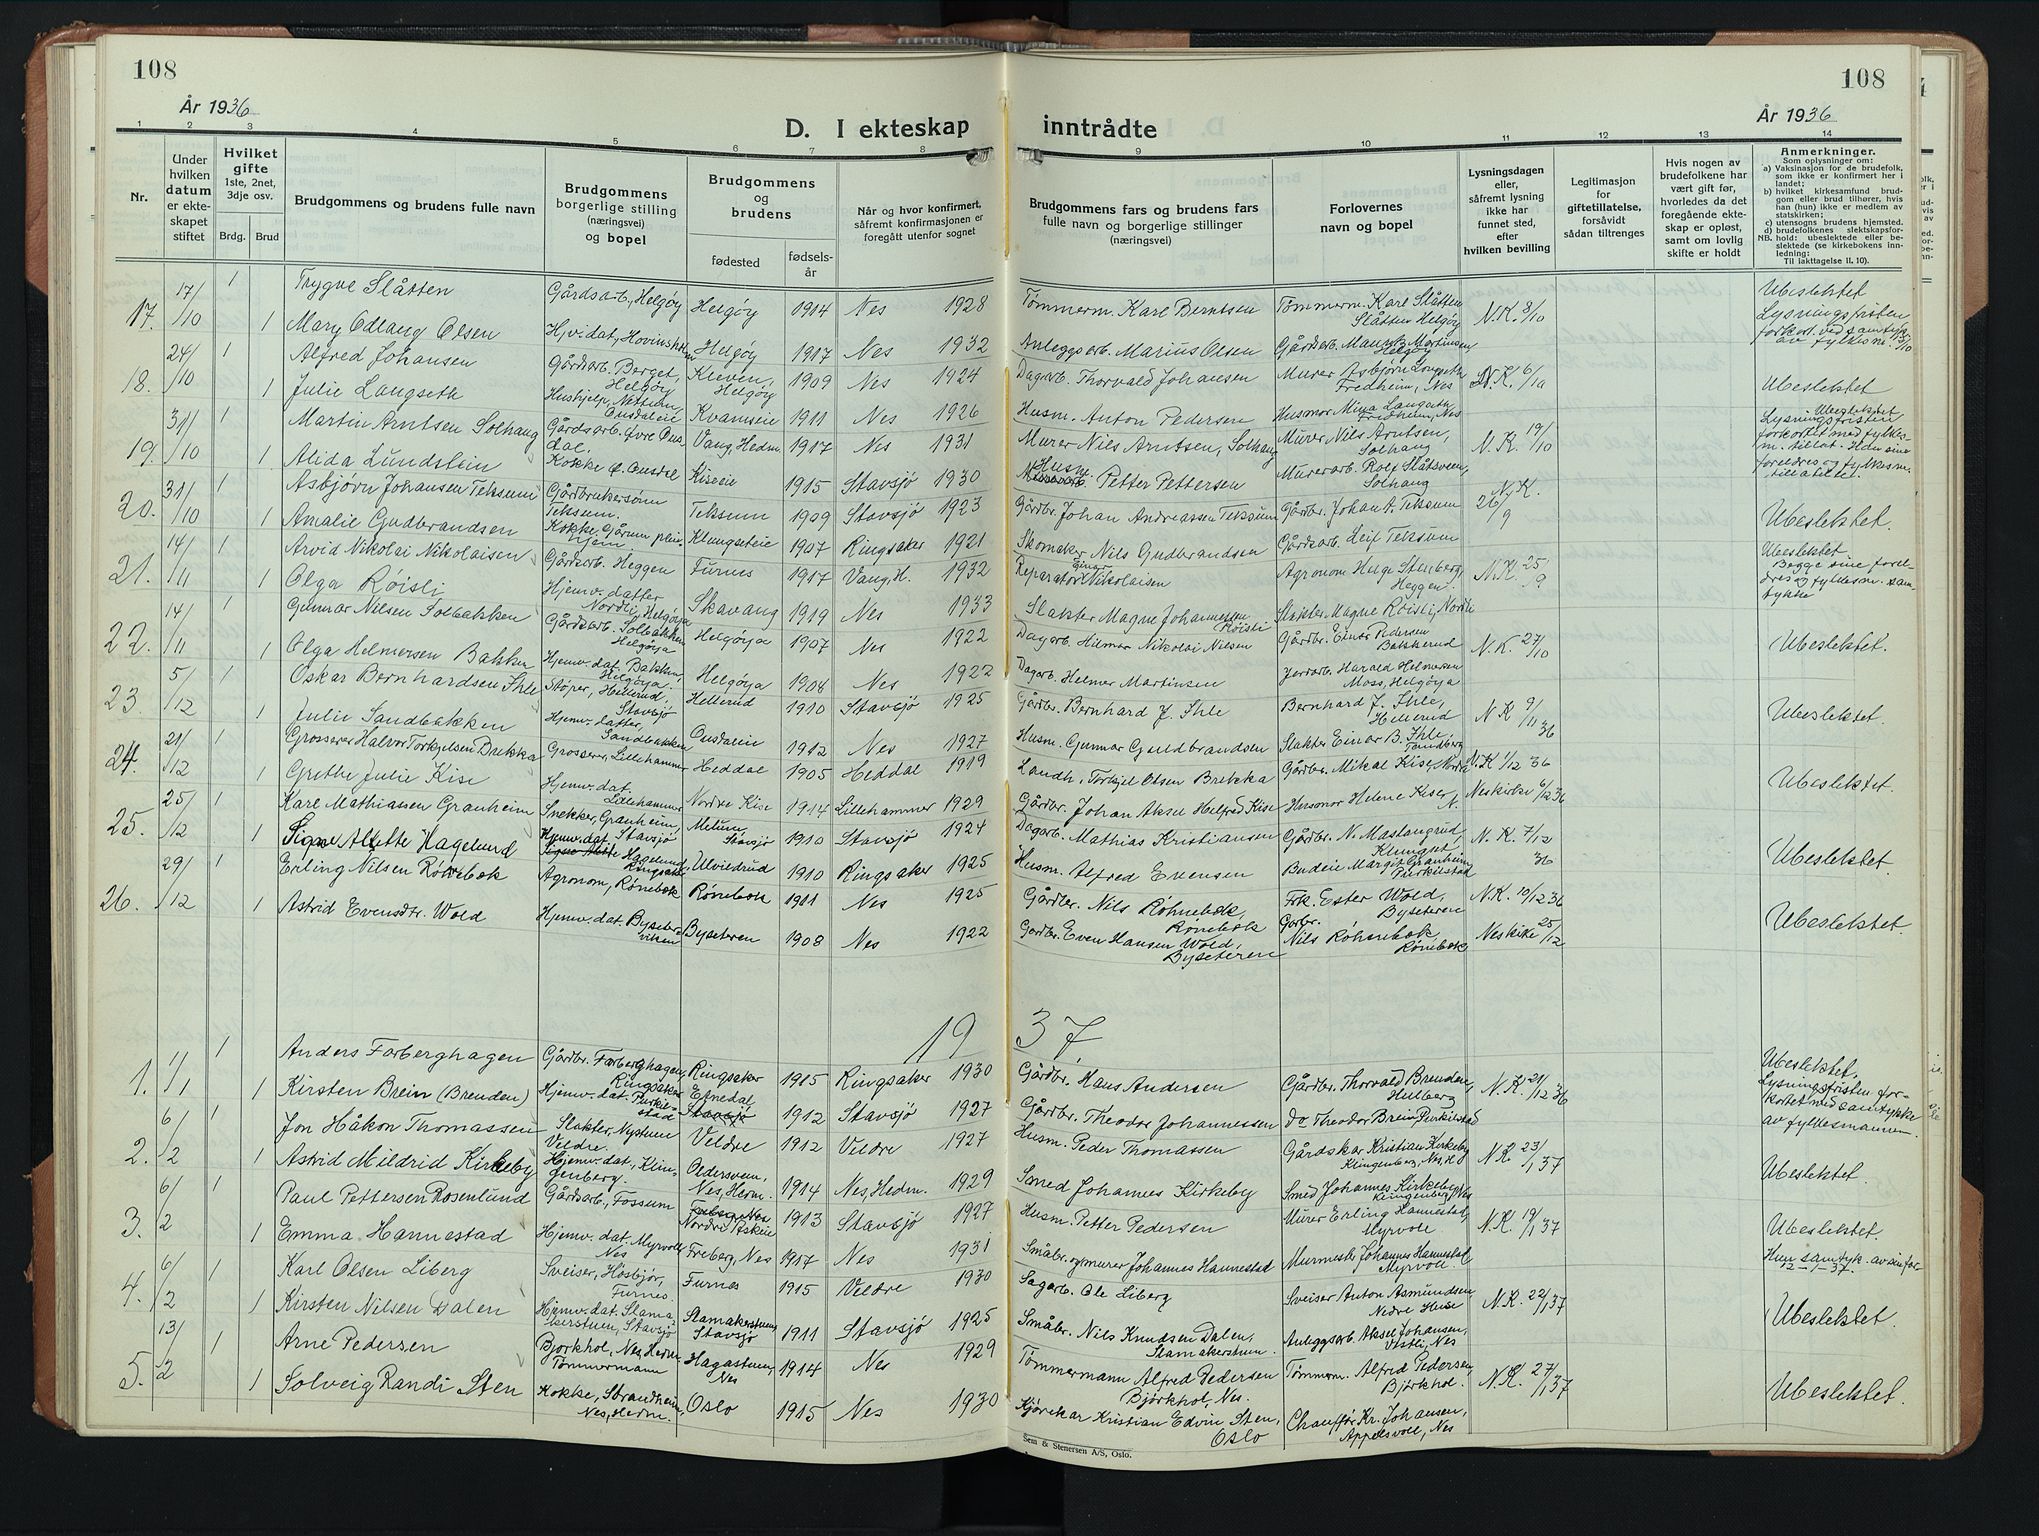 108
108
År 1936
År 1936
D. I ekteskap inntrådte
1 2 3 4 5 6 7 8 9 10 11 12 13 14
Nr.
Under hvilken datum er ekteskapet stiftet
Hvilket gifte 1ste, 2net, 3dje osv.
Brdg. Brud
Brudgommens og brudens fulle navn
Brudgommens borgerlige stilling (næringsvei) og bopel
Brudgommens og brudens
fødested
fødselsår
Når og hvor konfirmert, såfremt konfirmasjonen er foregått utenfor sognet
Brudgommens fars og brudens fars fulle navn og borgerlige stillinger (næringsvei)
Forlovernes navn og bopel
Lysningsdagen eller, såfremt lysning ikke har funnet sted, efter hvilken bevilling
Legitimasjon for giftetillatelse, forsåvidt sådan tiltrenges
Hvis nogen av brudefolkene har vært gift før, hvorledes da det foregående ekteskap er opløst, samt om lovlig skifte er holdt
Anmerkninger.
Som oplysninger om:
a) Vaksinasjon for de brudefolk, som ikke er konfirmert her i landet;
b) hvilket kirkesamfund brudgom eller brud tilhører, hvis han (hun) ikke er medlem av statskirken;
c) utensogns brudens hjemsted.
d) brudefolkenes slektskapsforhold: ubeslektede eller beslektede (se kirkebokens innledning:
NB. Til iakttagelse II, 10).
17. 17/10 1 Trygve Slåtten Gårdsarb., Helgøy Helgøy 1914 Nes 1928 Tømmerm. Karl Berntsen Tømmerm. Karl Slåtten Slåtten Helgøy N.K. 8/10 Ubeslektet Lysningsfristen forkort. ved samtykke av fylkesm. 13/10
1 Mary Odlaug Olsen Hjv. dat., Helgøy 1917 Nes 1932 Anleggsarb. Marius Olsen Gårdarb. Mauritz Martinsen Helgøy
18. 24/10 1 Alfred Johansen Gårdsarb. Berget, Helgøy Kleven, Helgøy 1909 Nes 1924 Dagarb. Thorvald Johansen Murer Asbjørn Langseth Fredheim, Nes N.K. 6/10 Ubeslektet
1 Julie Langseth Hushjelp, Kvamseie 1911 Nes 1926 Husm. Anton Pedersen Husmor Mina Langseth Fredheim, Nes
19. 31/10 1 Martin Arntsen Solhaug Gårdsarb. Øvre Ousdal. Vang, Hedm. 1917 Nes 1931 Murer Nils Arntsen, Solhaug Murer Nils Arntsen, Solhaug N.K. 19/10 Ubeslektet Lysningsfristen forkortet med fylkesm. tillat. Han sine foreldres og fylkesm. tillatelse.
1 Alida Lundstein Kokke Ø. Ousdal Kiseeie 1915 Stavsjø 1930 Husm. Petter Pettersen Murerarb. Rolf Slåtsveen, Solhaug
20. 31/10 1 Asbjørn Johansen Teksum Gårdbrukersønn Teksum. Teksum 1909 Stavsjø 1923 Gårdbr. Johan Andreassen Teksum Gårdbr. Johan A. Teksum N.K. 26/9 Ubeslektet.
1 Amalie Gudbrandsen Kokke. Gårum pleiehjem Klungseteie 1907 Ringsaker 1921 Skomaker Nils Gudbrandsen Gårdsarb. Leif Teksum
21. 14/11 1 Arvid Nikolai Nikolaisen Gårdsarb. Heggen Furnes 1917 Vang, H. 1932 Reparatør Einar Nikolaisen Agronom Helge Stenberg, Heggen. N.K. 25/9 Ubeslektet. Begge sine foreldres og fylkesm. samtykke
1 Olga Røisli Hjemv. datter Nordli, Helgøya Skavang 1919 Nes 1933 Slakter Magne Johannessen Røisli Slakter Magne Røisli, Nordli
22. 14/11 1 Gunnar Nilsen Solbakken Gårdsarb. Solbakken Helgøya Helgøya 1907 Nes 1922 Dagarb. Hilmar Nikolai Nilsen Gårdbr. Einar Pedersen Bakkerud N.K. 27/10 Ubeslektet.
1 Olga Helmersen Bakken Hjemv. dat. Bakken, Helgøya. Helgøya 1908 Nes 1922 Dagarb. Helmer Martinsen Jordarb. Harald Helmersen Moss, Helgøya
23. 5/12 1 Oskar Bernhardsen Ihle Støper, Hellerud, Stavsjø Hellerud 1910 Stavsjø 1925 Gårdbr. Bernhard J. Ihle Bernhard J. Ihle, Hellerud N.K. 9/11 36 Ubeslektet.
1 Julie Sandbakken Hjemv. datter, Sandbakken Ousdaleie 1912 Nes 1927 Husm. Gunnar Guldbrandsen Slakter Einar B. Ihle Tandberg
24. 21/12 1 Grosserer Halvor Torkjelsen Brekka Grosserer, Lillehammer Heddal 1905 Heddal 1919 Landh. Torkjel Olsen Brekka Gårdbr. Mikal Kise, Nordre N.K. 1/12 36 Ubeslektet.
1 Grethe Julie Kise Hjemv. dat. Lillehammer Nordre Kise 1914 Lillehammer 1929 Gårdbr. Johan Aksel Helfred Kise Husmor Helene Kise, N. Neskirke 6/12 36
25. 25/12 1 Karl Mathiassen Granheim Snekker, Granheim, Stavsjø Stavsjø 1910 Stavsjø 1924 Dagarb. Mathias Kristiansen Gårdbr. N. Mastangrud, Klungset N.K. 7/12 36 Ubeslektet.
1 Signe Alette Hagelund Hjemv. dat. Hagelund, Ringsaker Ulvierud 1910 Ringsaker 1925 Husm. Alfred Evensen Budeie Margit Granheim Purkilstad
26. 29/12 1 Erling Nilsen Rønebok Agronom, Rønebok Rønebok 1911 Nes 1925 Gårdbr. Nils Røhnebok, Rønebok Frk. Ester Wold, Byseteren N.K. 10/12 36 Ubeslektet.
1 Astrid Evensdtr. Wold Hjemv. dat. Byseteren 1908 Nes 1922 Gårdbr. Even Hansen Wold, Byseteren Garbr. Nils Røhnebok Rønebok Neskike 25/12
19 37.
1. 1/1 1 Anders Farberghagen Gårdbr. Farberghagen, Ringsaker Ringsaker 1905 Ringsaker 1930 Gårdbr. Hans Andersen Gårdbr. Thorvald Brenden, Hulberg N.K. 21/12 36 Ubeslektet. Lysningsfristen forkortet med samtykke av fylkesmannen.
1 Kirsten Brein (Brenden) Hjemv. dat. Purkilstad Etnedal Stavsjø 1912 Stavsjø 1927 Gårdbr. Theodor Johannessen Do Theodor Brein Purkilstad
2. 6/2 1 Jon Håkon Thomassen Slakter, Neptun Veldre Veldre 1912 Veldre 1927 Husm. Peder Thomassen Gårdskar Kristian Kirkeby Klingenberg, Nes, H N.K. 23/1 37 Ubeslektet.
1 Astrid Mildrid Kirkeby Hjemv. dat., Klingenberg. Nes, Hedm. 1914 Nes, Hedm. 1929 Smed Johannes Kirkeby Smed Johannes Kirkeby, Klingenberg, Nes
3. 6/2 1 Paul Pettersen Rosenlund Gårdsarb., Fossum 1913 Stavsjø 1927 Husm. Petter Pedersen Murer Erling Hannestad, Myrvoll N.K. 19/1 37 Ubeslektet
1 Emma Hannestad Hjemv. dat. Myrvoll Nes Freberg, Nes 1917 Nes 1931 Småbr. og murer Johannes Hannestad Murmester Johannes Hannestad Myrvoll. Hun samtyk. av sin far 12-1-37.
4. 6/2 1 Karl Olsen Liberg Sveiser, Hosbjør, Furnes. Furnes 1915 Veldre 1930 Sagarb. Ole Liberg Sveiser Anton Asmundsen Nedre Huse N.K. 22/1 37 Ubeslektet.
1 Kirsten Nilsen Dalen Hjemv. dat. Slamakerstuen, Stavsjø Slamakerstuen, Stavsjø 1911 Stavsjø 1925 Småbr. Nils Knudsen Dalen, Slamakerstuen. Anleggsarb. Aksel Johansen, Vestli, Nes
5. 13/2 1 Arne Pedersen Bjørkhol, Nes, Hedm. Tømmermann Hagastuen, Nes 1914 Nes 1929 Tømmermann Alfred Pedersen Bjørkhol, Nes. Tømmerm. Alfred Pedersen, Bjørkhol. N.K. 27/1 37 Ubeslektet.
1 Solveig Randi Sten Kokke, Strandheim, Nes, Hedm. Oslo 1915 Nes 1930 Kjørekar Kristian Edvin Sten, Oslo Chauffør Kr. Johansen, Appelsvoll, Nes
Sem & Stenersen A/S, Oslo.